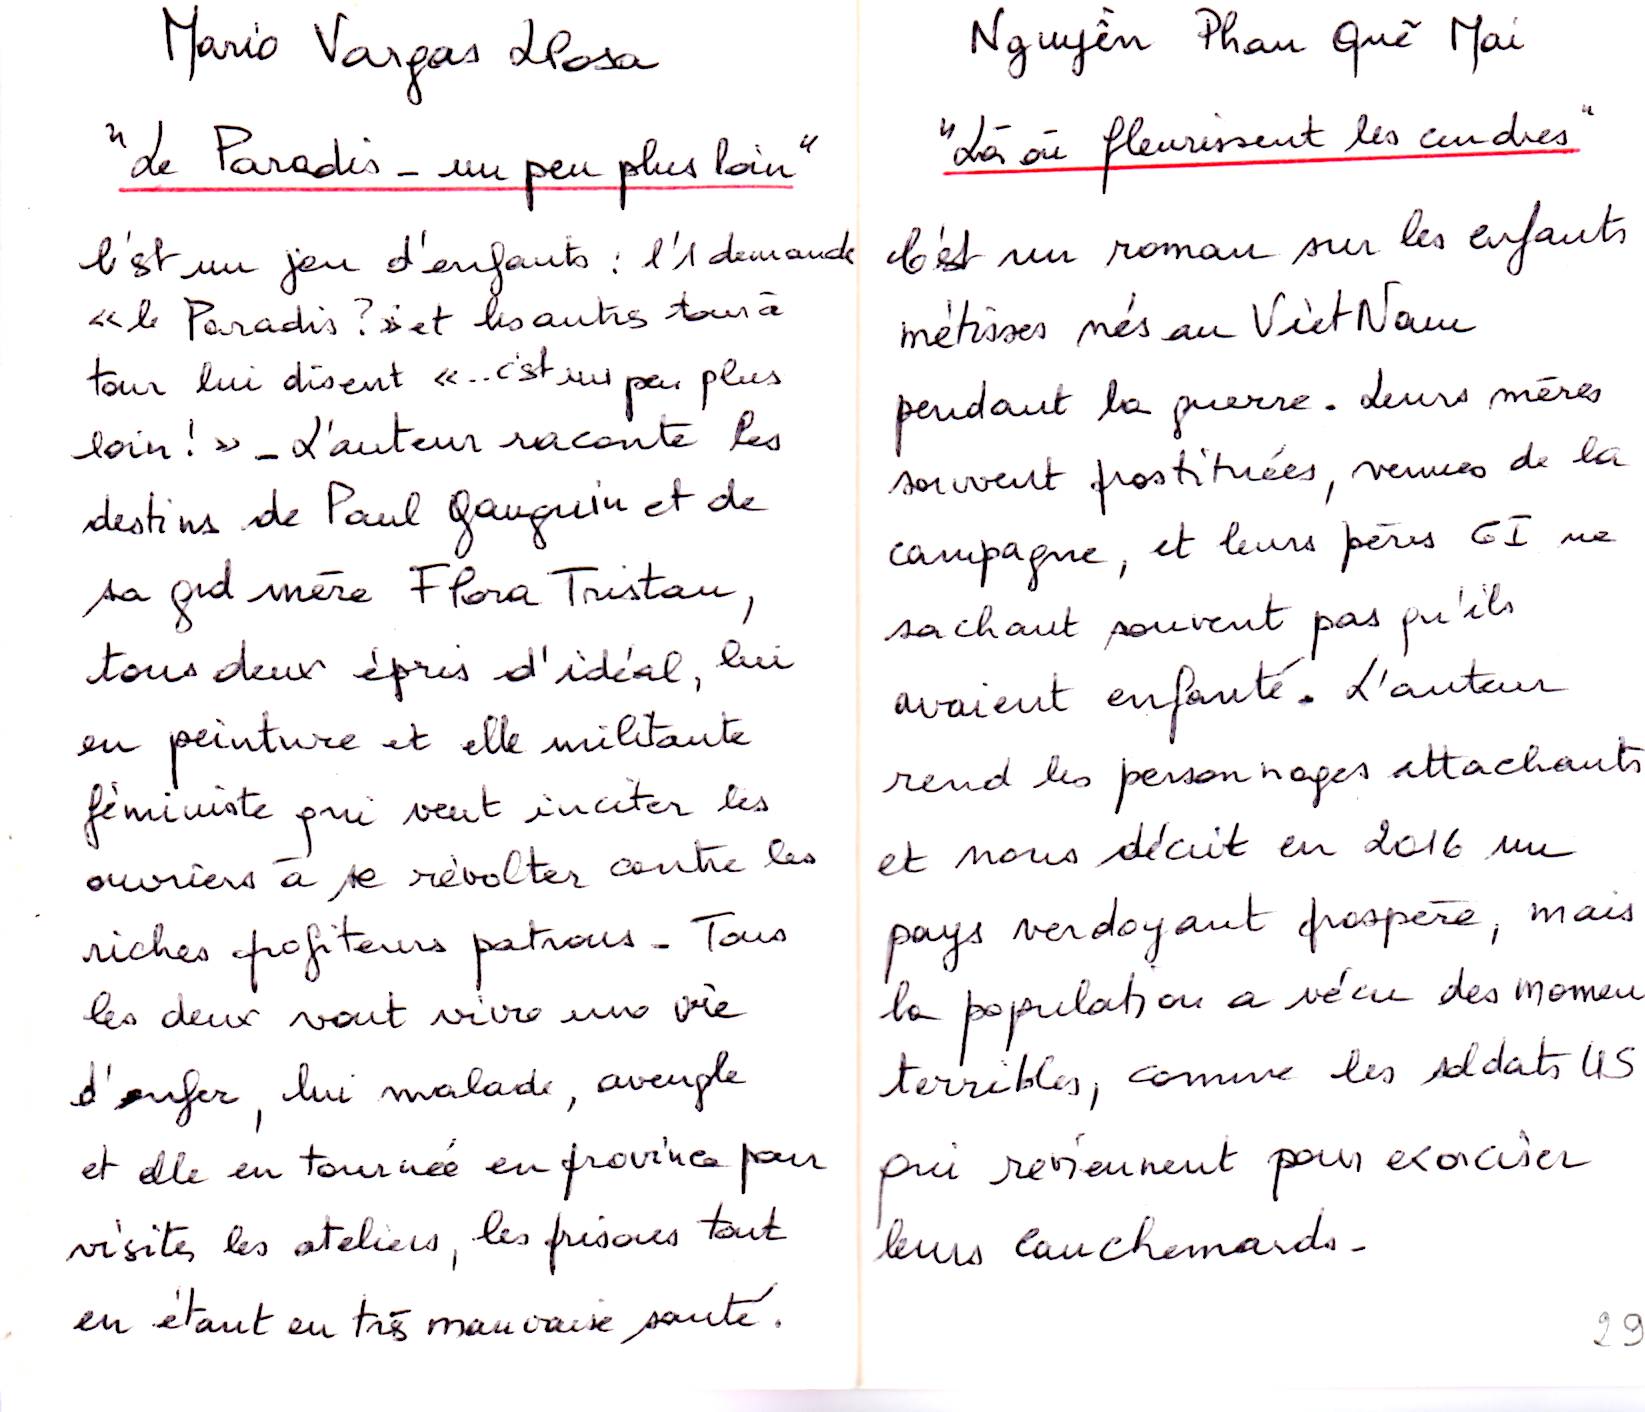 Mario Vargas Llosa
"Le Paradis - un peu plus loin"
C'est un jeu d'enfants : l'1 demande
« le Paradis ? » et les autres tour à
tour lui disent «.. c'est un peu plus
loin ! » - L'auteur raconte les
destins de Paul Gauguin et de
sa grd mère Flora Tristan,
tous deux épris d'idéal, lui
en peinture et elle militante
féministe qui veut inciter les
ouvriers à se révolter contre les
riches profiteurs patrons - Tous
les deux vont vivre une vie
d'enfer, lui malade, aveugle
et elle en tournée en province pour
visiter les ateliers, les prisons tout
en étant en très mauvaise santé.
Nguyên Phan Quê Mai
"Là où fleurissent les cendres"
C'est un roman sur les enfants
métisses nés au Vièt Nam
pendant la guerre. Leurs mères
souvent prostituées, venues de la
campagne, et leurs pères GI ne
sachant souvent pas qu'ils
avaient enfanté. L'auteur
rend les personnages attachants
et nous décrit en 2016 un
pays verdoyant prospère, mais
la population a vécu des momen
terribles, comme les soldats US
qui reviennent pour exorciser
leurs cauchemards -
29